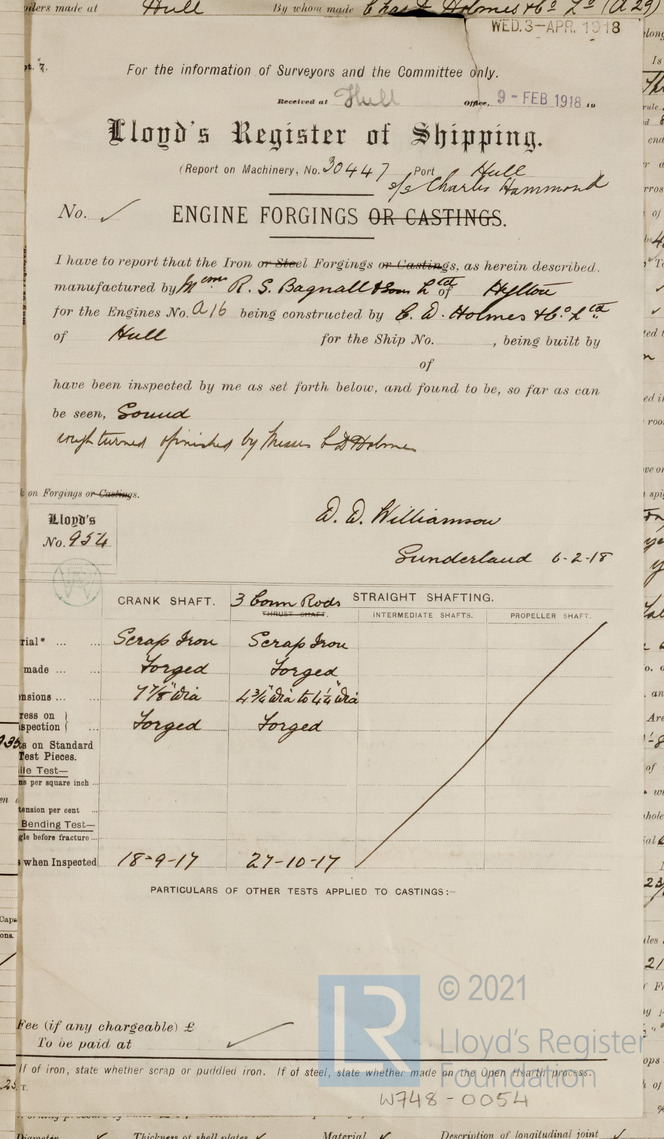 oilers made at Hull By whom made Chas D Holmes & Co Ld (A 29)
WED. 3-APR. 1918
For the information of Surveyors and the Committee only.
Received at Hull Office, 9 - FEB 1918 19
Lloyd's Register of Shipping.
(Report on Machinery, No. 30447 Port Hull
s/s Charles Hammond
No. ✓ ENGINE FORGINGS OR CASTINGS.
I have to report that the Iron or Steel Forgings or Castings, as herein described,
manufactured by Messrs R. S. Bagnall & Sons Ltd of Hylton
for the Engines No. A16 being constructed by C. D. Holmes & Co. Ltd
of Hull for the Ship No. , being built by
of
have been inspected by me as set forth below, and found to be, so far as can
be seen, Sound
rough turned & finished by Messrs C D Holmes
on Forgings or Castings.
Lloyd's
No. 954
D. D. Williamson
Sunderland 6-2-18
CRANK SHAFT. 3 Conn Rods STRAIGHT SHAFTING.
THRUST SHAFT. INTERMEDIATE SHAFTS. PROPELLER SHAFT.
rial* ... ... Scrap Iron Scrap Iron
made ... ... Forged Forged
nsions ... ... 7 7/8" dia 4 3/4" dia to 4 1/4" dia
ress on }
spection { ... Forged Forged
s on Standard
Test Pieces.
ile Test—
ns per square inch ...
tension per cent ...
Bending Test—
gle before fracture ...
s when Inspected 18-9-17 27-10-17
PARTICULARS OF OTHER TESTS APPLIED TO CASTINGS:—
Fee (if any chargeable) £
To be paid at ✓
If of iron, state whether scrap or puddled iron. If of steel, state whether made on the Open Hearth process.
© 2021
LR
Lloyd's Register
Foundation
W748-0054
Diameter ✓ Thickness of shell plates ✓ Material ✓ Description of longitudinal joint ✓